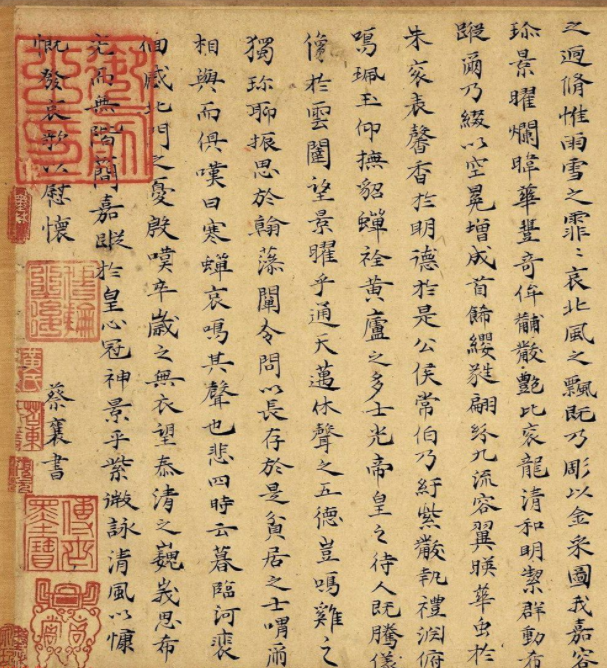 之迥脩惟雨雪之霏〻哀北風之飄既乃彫以金采圖我嘉容
珎景曜爛暐華豐奇侔黼黻艷比袞龍清和明潔群動希
蹤爾乃綴以玄冕增成首飾纓蕤翩紛九流容翼暎華虫於
朱袞表馨香於明德於是公侯常伯乃紆紫黻執禮淵俯
鳴珮玉仰撫貂蟬黃廬之多士光帝皇之待人既騰儀
像於雲闈望景曜乎通天邁休聲之五德豈鳴雞之
獨珎聊振思於翰藻闡令問以長存於是貧居之士喟爾
相與而俱嘆曰寒蟬哀鳴其聲也悲四時云暮臨河裴
徊感北門之憂殷嘆卒歲之無衣望泰清之巍峩思布
光而無階簡嘉蹤於皇心冠神景乎紫微詠清風以慷
慨發哀歌以慰懷
蔡襄書